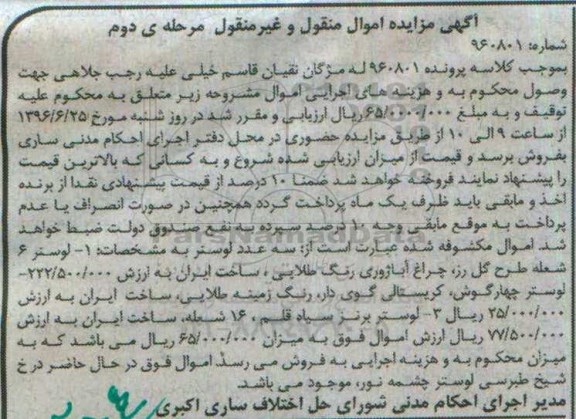 آگهی مزایده اموال منقول و غیرمنقول مرحله ی دوم
شماره: ۹۶۰۸۰۱
بموجب کلاسه پرونده ۹۶۰۸۰۱ له مژگان تقیان قاسم خیلی علیه رجب جلاهی جهت
وصول محکوم به و هزینه های اجرایی اموال مشروحه زیر متعلق به محکوم علیه
توقیف و به مبلغ ۶۵/۰۰۰/۰۰۰ ریال ارزیابی و مقرر شد در روز شنبه مورخ ۱۳۹۶/۶/۲۵
از ساعت ۹ الی ۱۰ از طریق مزایده حضوری در محل دفتر اجرای احکام مدنی ساری
بفروش برسد و قیمت از میزان ارزیابی شده شروع و به کسانی که بالاترین قیمت
را پیشنهاد نمایند فروخته خواهد شد ضمنا ۱۰ درصد از قیمت پیشنهادی نقدا از برنده
اخذ و مابقی باید ظرف یک ماه پرداخت گردد همچنین در صورت انصراف یا عدم
پرداخت به موقع مابقی وجه ۱۰ درصد سپرده به نفع صندوق دولت ضبط خواهد
شد. اموال مکشوفه شده عبارت است از: سه عدد لوستر به مشخصات: ۱- لوستر ۶
شعله طرح گل رز، چراغ آباژوری رنگ طلایی، ساخت ایران به ارزش ۲۲۲/۵۰۰/۰۰۰-
لوستر چهارگوش، کریستالی گوی دار، رنگ زمینه طلایی، ساخت ایران به ارزش
۲۵/۰۰۰/۰۰۰ ریال ۳- لوستر برنز سیاه قلم، ۱۶ شعله، ساخت ایران به ارزش
۷۷/۵۰۰/۰۰۰ ریال ارزش اموال فوق به میزان ۶۵/۰۰۰/۰۰۰ ریال می باشد که به
میزان محکوم به و هزینه اجرایی به فروش می رسد. اموال فوق در حال حاضر در خ
شیخ طبرسی لوستر چشمه نور، موجود می باشد.
مدیر اجرای احکام مدنی شورای حل اختلاف ساری اکبری